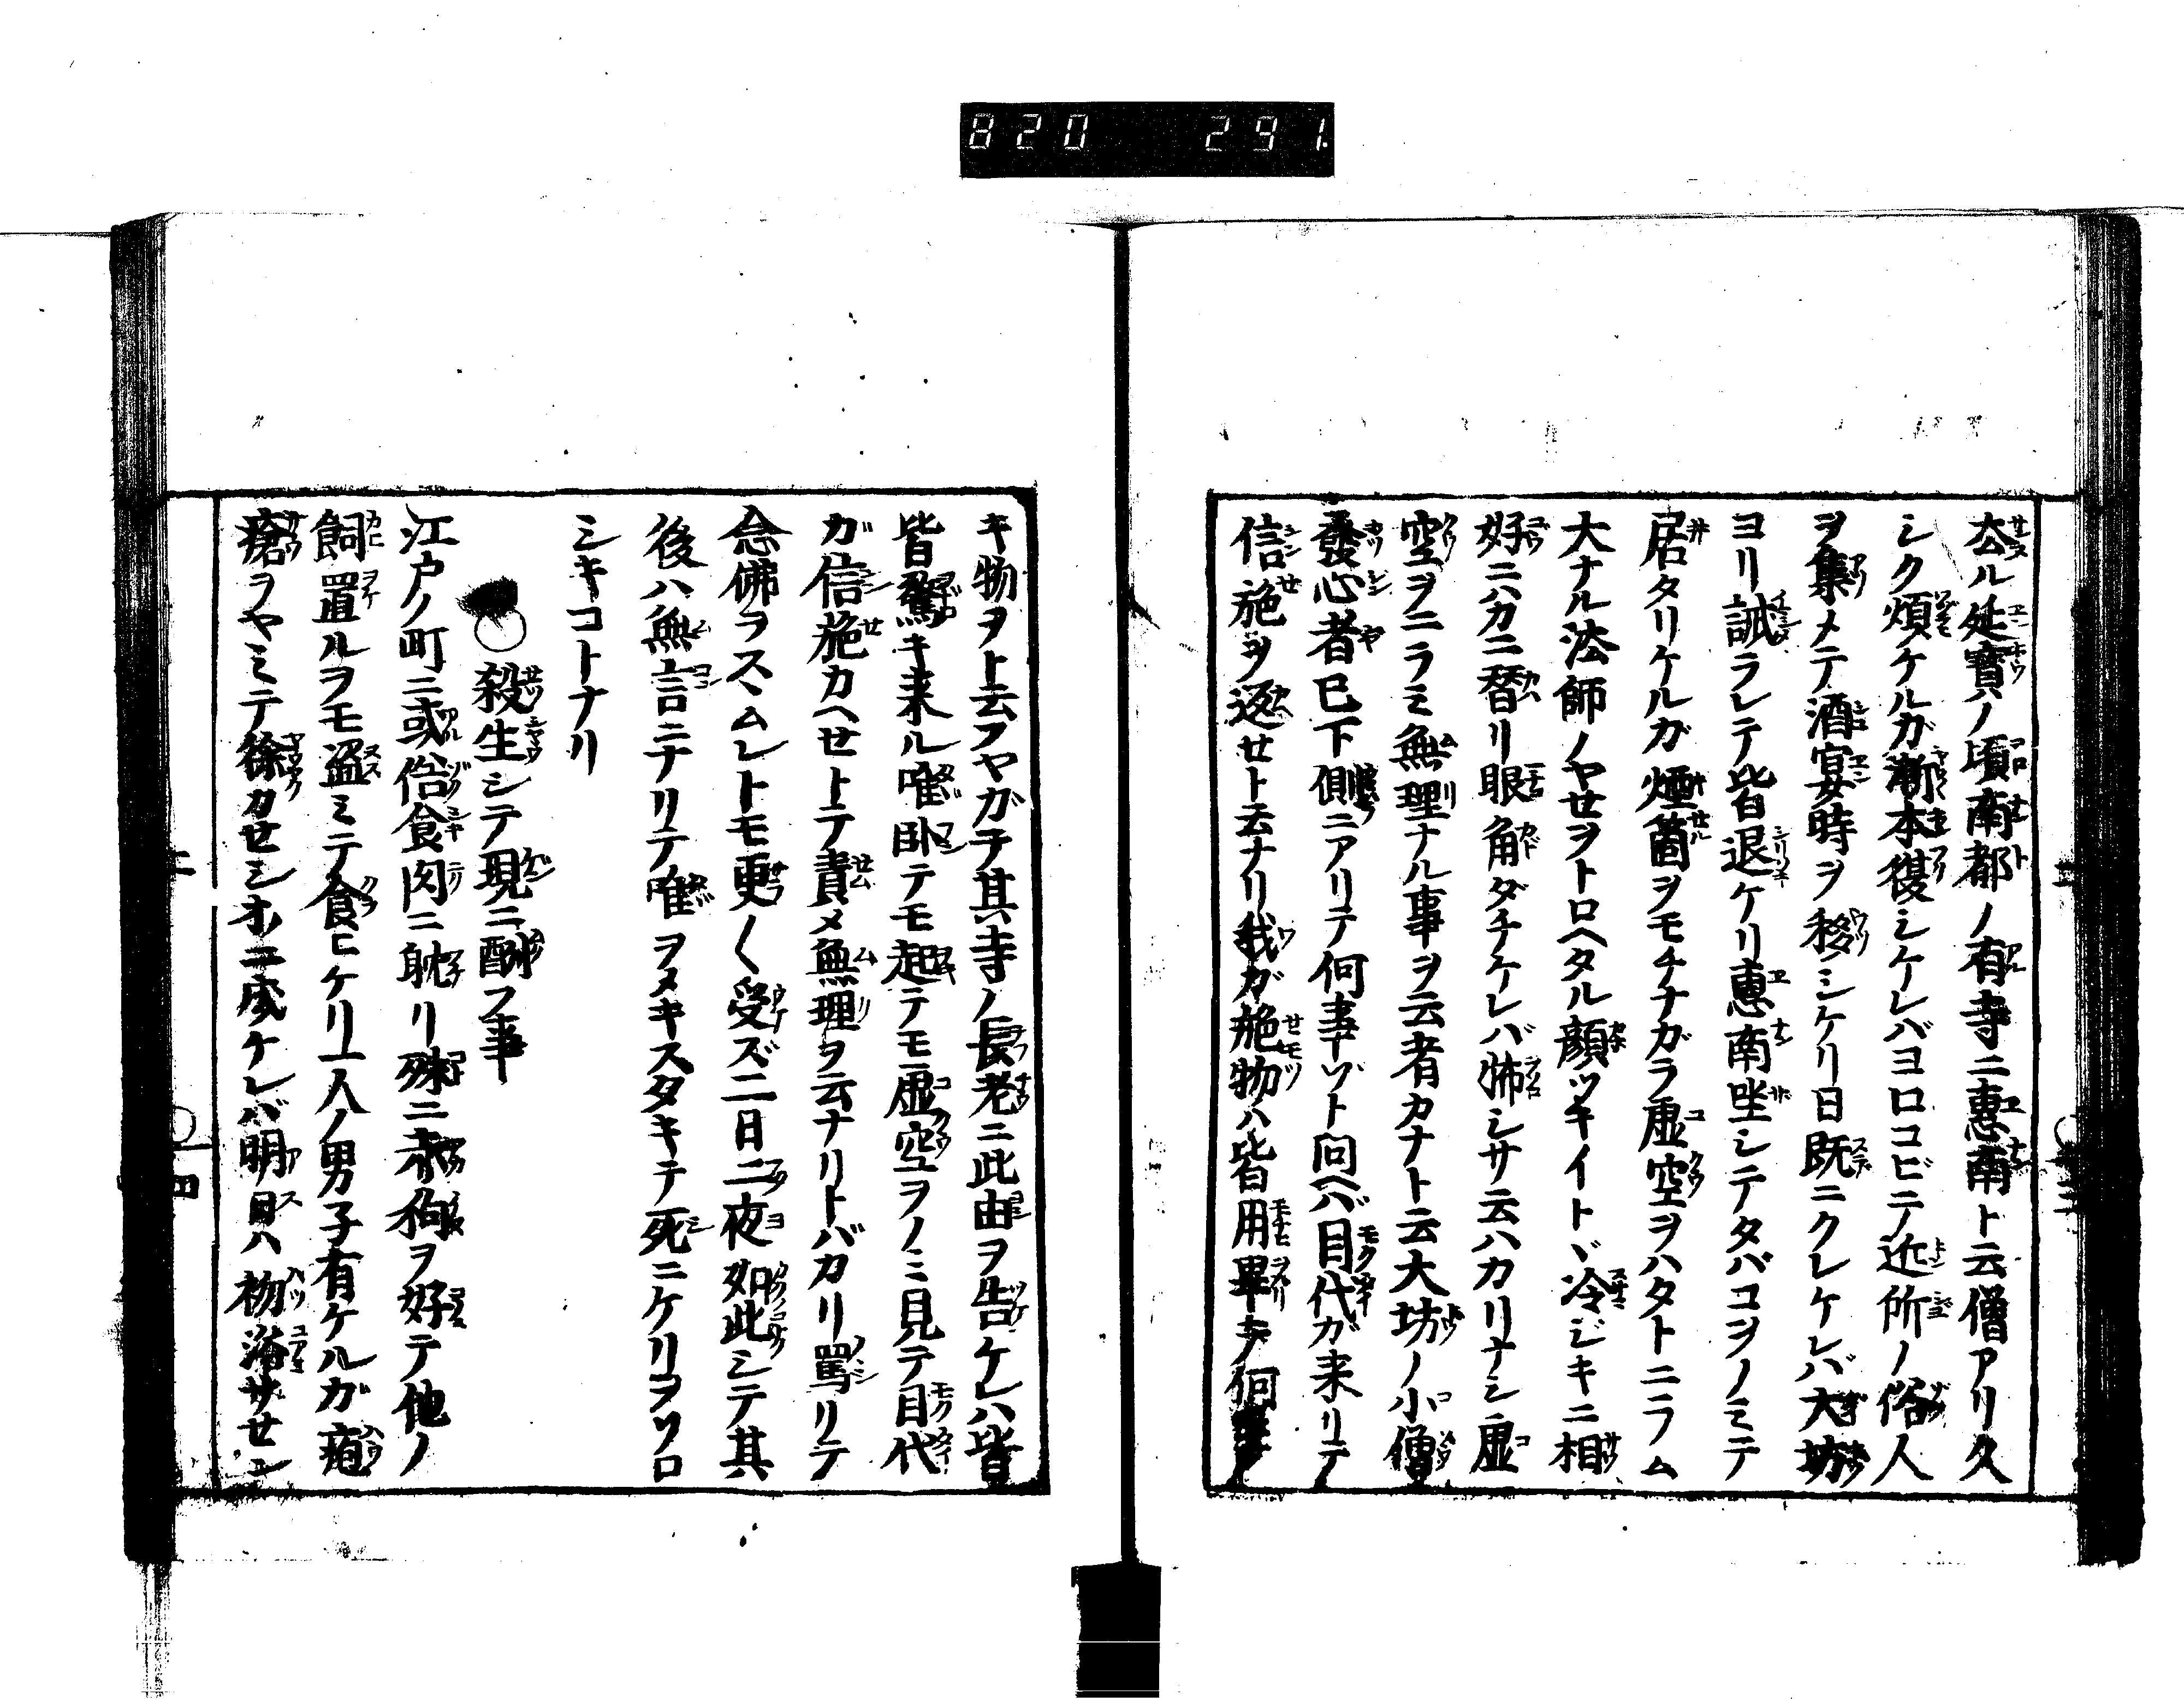 820 291
厺ル延寶ノ頃南都ノ有寺ニ惠南ト云僧アリ久
シク煩ケルガ漸本復シケレバヨロコビニ近所ノ俗人
ヲ集メテ酒宴時ヲ移シケリ日既ニクレケレバ大坊
ヨリ誡ラレテ皆退ケリ惠南坐シテタバコヲノミテ
居タリケルガ煙筒ヲモチナガラ虚空ヲハタトニラム
大ナル法師ノヤセヲトロヘタル顔ツキイトヾ冷ジキニ相
好ニハカニ替リ眼角ダチケレバ怖シサ云ハカリナシ虚
空ヲニラミ無理ナル事ヲ云者カナト云大坊ノ小僧
發心者已下側ニアリテ何事ゾト問ヘバ目代ガ来リテ
信施ヲ返セト云ナリ我ガ施物ハ皆用畢テ何
キ物ヲト云フヤガテ其寺ノ長老ニ此由ヲ告ケレハ皆
皆驚キ来ル唯臥テモ起テモ虚空ヲノミ見テ目代
ガ信施カヘセトテ責メ無理ヲ云ナリトバカリ罵リテ
念佛ヲスヽムレトモ更〱受ズ二日二夜如此シテ其
後ハ無言ニナリテ唯ヲメキスタキテ死ニケリヲソロ
シキコトナリ
○殺生シテ現ニ酬フ事
江戸ノ町ニ或俗食肉ニ耽リ殊ニ赤狗ヲ好テ他ノ
飼置ルヲモ盗ミテ食ヒケリ一人ノ男子有ケルガ疱
瘡ヲヤミテ徐カセシホニ成ケレバ明日ハ初浴サセン
上 ○ 四